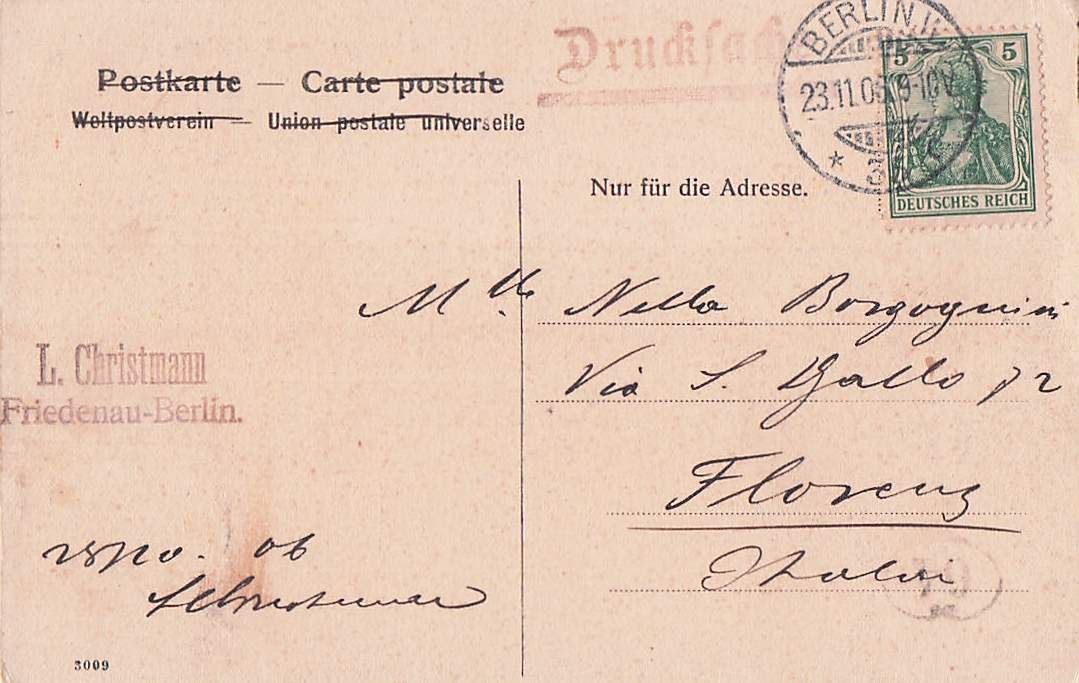 Postkarte — Carte postale
Weltpostverein — Union postale universelle
Drucksache
BERLIN
23.11.06 9-10V
5 5
DEUTSCHES REICH
Nur für die Adresse.
Mlle. Nella Borgognini
Via S. Gallo 72
Florenz
Italien
L. Christmann
Friedenau-Berlin.
Nov. 06
LChristmann
3009